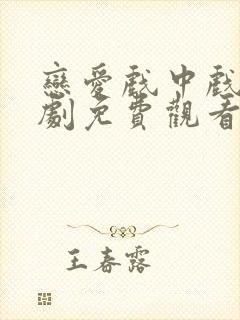 戀愛戲中戲
劇免費觀看
王春露